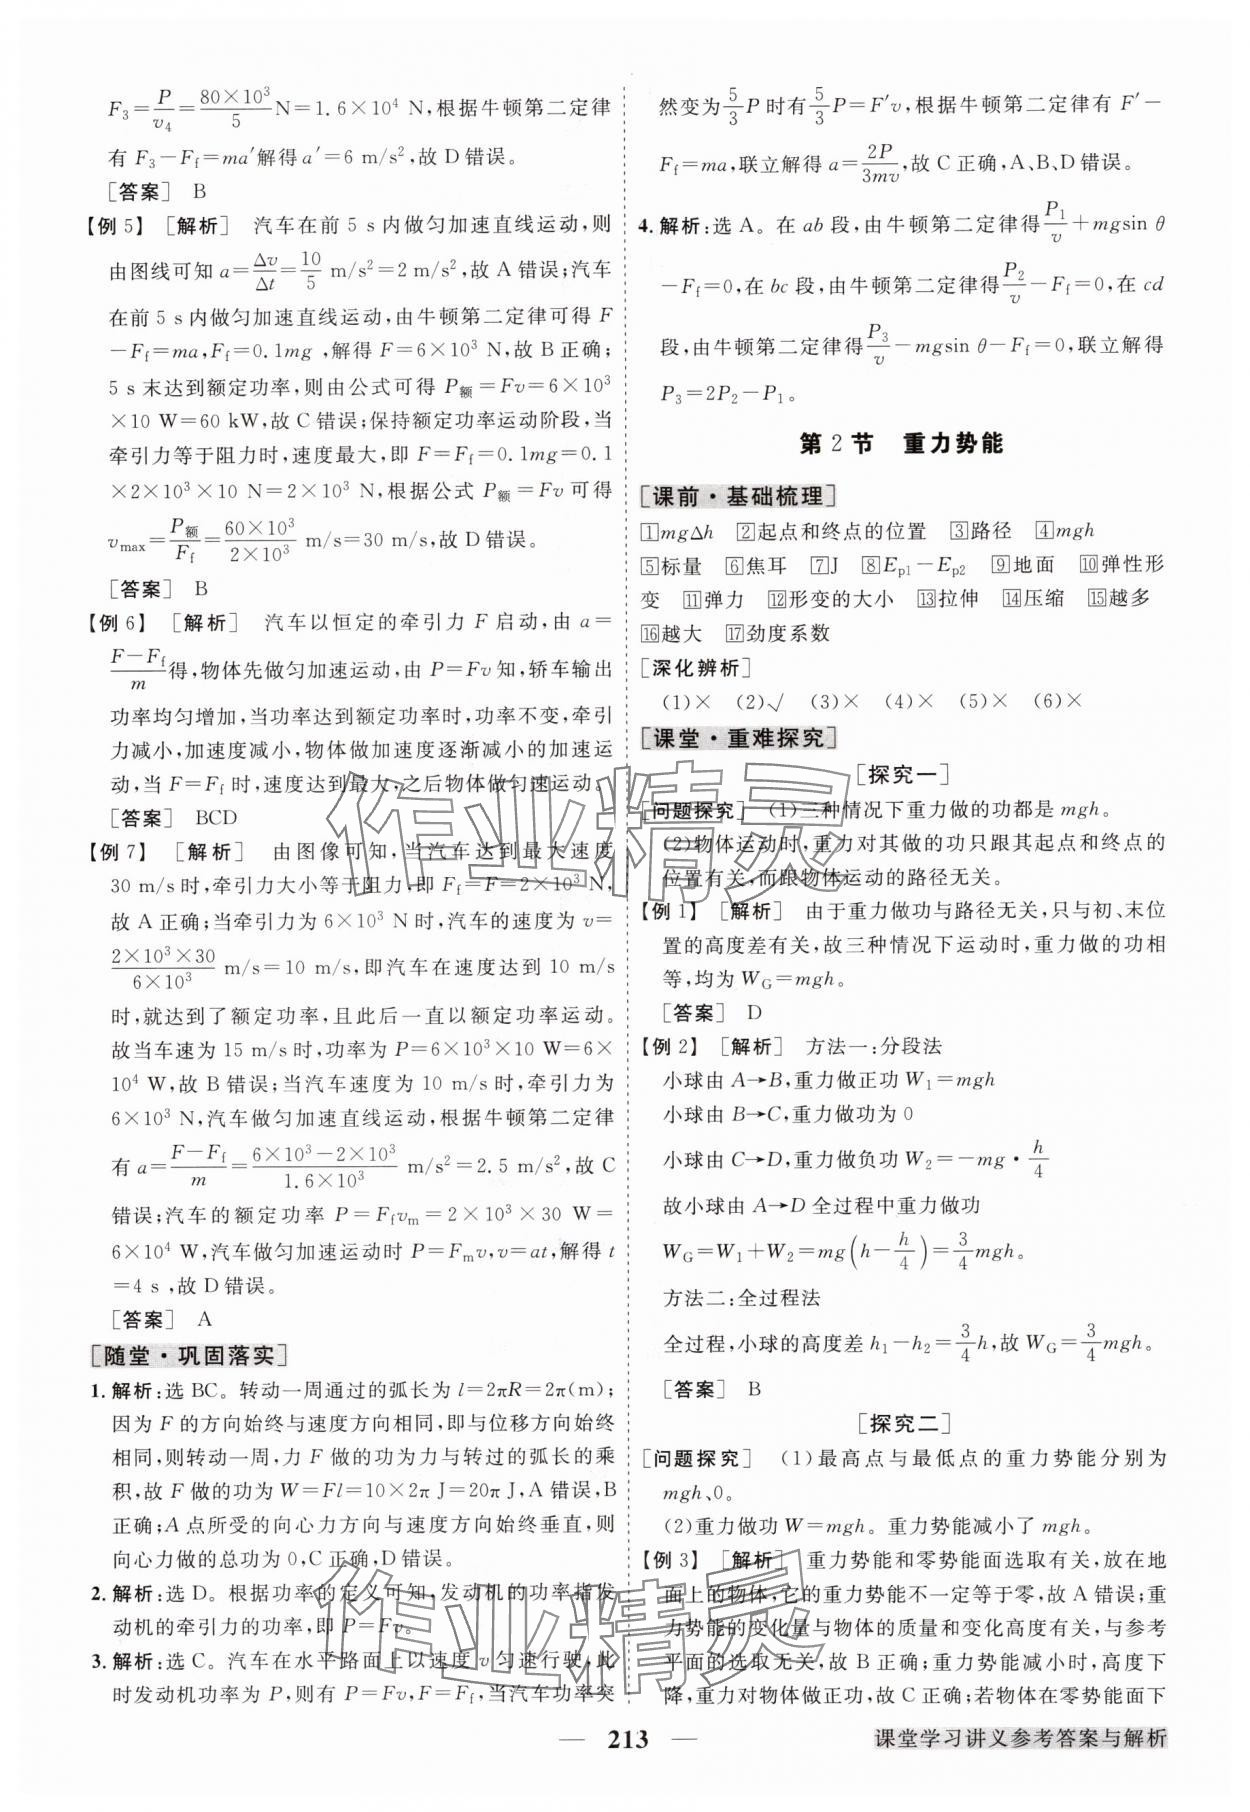 F₃=P/v₄=80×10³/5 N=1.6×10⁴ N,根据牛顿第二定律
有 F₃-F_f=ma′解得 a′=6 m/s²,故 D 错误。
[答案] B
【例 5】 [解析] 汽车在前 5 s 内做匀加速直线运动,则
由图线可知 a=Δv/Δt=10/5 m/s²=2 m/s²,故 A 错误;汽车
在前 5 s 内做匀加速直线运动,由牛顿第二定律可得 F
-F_f=ma,F_f=0.1mg ,解得 F=6×10³ N,故 B 正确;
5 s 末达到额定功率,则由公式可得 P额=Fv=6×10³
×10 W=60 kW,故 C 错误;保持额定功率运动阶段,当
牵引力等于阻力时,速度最大,即 F=F_f=0.1mg=0.1
×2×10³×10 N=2×10³ N,根据公式 P额=Fv 可得
v_max=P额/F_f=60×10³/2×10³ m/s=30 m/s,故 D 错误。
[答案] B
【例 6】 [解析] 汽车以恒定的牵引力 F 启动,由 a=
(F-F_f)/m 得,物体先做匀加速运动,由 P=Fv 知,轿车输出
功率均匀增加,当功率达到额定功率时,功率不变,牵引
力减小,加速度减小,物体做加速度逐渐减小的加速运
动,当 F=F_f 时,速度达到最大,之后物体做匀速运动。
[答案] BCD
【例 7】 [解析] 由图像可知,当汽车达到最大速度
30 m/s 时,牵引力大小等于阻力,即 F_f=F=2×10³ N,
故 A 正确;当牵引力为 6×10³ N 时,汽车的速度为 v=
2×10³×30/6×10³ m/s=10 m/s,即汽车在速度达到 10 m/s
时,就达到了额定功率,且此后一直以额定功率运动。
故当车速为 15 m/s 时,功率为 P=6×10³×10 W=6×
10⁴ W,故 B 错误;当汽车速度为 10 m/s 时,牵引力为
6×10³ N,汽车做匀加速直线运动,根据牛顿第二定律
有 a=(F-F_f)/m=(6×10³-2×10³)/1.6×10³ m/s²=2.5 m/s²,故 C
错误;汽车的额定功率 P=F_f v_m=2×10³×30 W=
6×10⁴ W,汽车做匀加速运动时 P=F_m v,v=at,解得 t
=4 s ,故 D 错误。
[答案] A
[随堂·巩固落实]
1. 解析:选 BC。转动一周通过的弧长为 l=2πR=2π(m);
因为 F 的方向始终与速度方向相同,即与位移方向始终
相同,则转动一周,力 F 做的功为力与转过的弧长的乘
积,故 F 做的功为 W=Fl=10×2π J=20π J,A 错误,B
正确;A 点所受的向心力方向与速度方向始终垂直,则
向心力做的总功为 0,C 正确,D 错误。
2. 解析:选 D。根据功率的定义可知,发动机的功率指发
动机的牵引力的功率,即 P=Fv。
3. 解析:选 C。汽车在水平路面上以速度 v 匀速行驶,此
时发动机功率为 P,则有 P=Fv,F=F_f,当汽车功率突
然变为 5/3 P 时有 5/3 P=F′v,根据牛顿第二定律有 F′-
F_f=ma,联立解得 a=2P/3mv,故 C 正确,A、B、D 错误。
4. 解析:选 A。在 ab 段,由牛顿第二定律得 P₁/v+mgsin θ
-F_f=0,在 bc 段,由牛顿第二定律得 P₂/v-F_f=0,在 cd
段,由牛顿第二定律得 P₃/v-mgsin θ-F_f=0,联立解得
P₃=2P₂-P₁。
第 2 节 重力势能
[课前·基础梳理]
1 mgΔh 2 起点和终点的位置 3 路径 4 mgh
5 标量 6 焦耳 7 J 8 E_p1-E_p2 9 地面 10 弹性形
变 11 弹力 12 形变的大小 13 拉伸 14 压缩 15 越多
16 越大 17 劲度系数
[深化辨析]
(1)× (2)√ (3)× (4)× (5)× (6)×
[课堂·重难探究]
[探究一]
[问题探究] (1)三种情况下重力做的功都是 mgh。
(2)物体运动时,重力对其做的功只跟其起点和终点的
位置有关,而跟物体运动的路径无关。
【例 1】 [解析] 由于重力做功与路径无关,只与初、末位
置的高度差有关,故三种情况下运动时,重力做的功相
等,均为 W_G=mgh。
[答案] D
【例 2】 [解析] 方法一:分段法
小球由 A→B,重力做正功 W₁=mgh
小球由 B→C,重力做功为 0
小球由 C→D,重力做负功 W₂=-mg·h/4
故小球由 A→D 全过程中重力做功
W_G=W₁+W₂=mg(h-h/4)=3/4 mgh。
方法二:全过程法
全过程,小球的高度差 h₁-h₂=3/4 h,故 W_G=3/4 mgh。
[答案] B
[探究二]
[问题探究] (1)最高点与最低点的重力势能分别为
mgh、0。
(2)重力做功 W=mgh。重力势能减小了 mgh。
【例 3】 [解析] 重力势能和零势能面选取有关,放在地
面上的物体,它的重力势能不一定等于零,故 A 错误;重
力势能的变化量与物体的质量和变化高度有关,与参考
平面的选取无关,故 B 正确;重力势能减小时,高度下
降,重力对物体做正功,故 C 正确;若物体在零势能面下
— 213 —
课堂学习讲义参考答案与解析
作业精灵
作业精灵